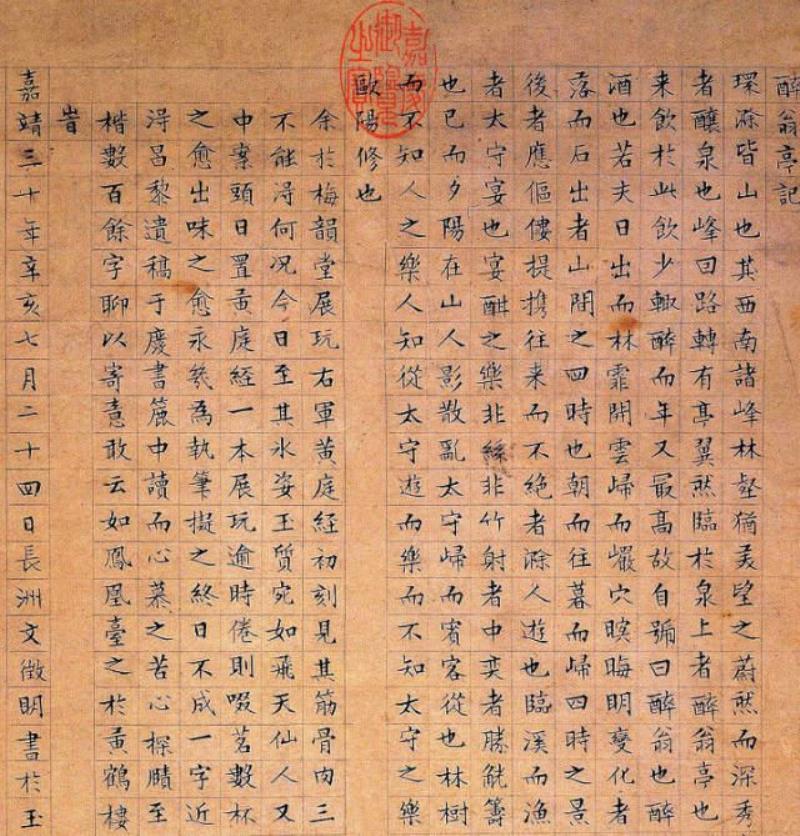 醉翁亭記
環滁皆山也其西南諸峰林壑猶羙望之蔚然而深秀
者釀泉也峰回路轉有亭翼然臨於泉上者醉翁亭也
来飲於此飲少輒醉而年又最高故自號曰醉翁也醉
酒也若夫日出而林霏開雲歸而巖穴暝晦明變化者
落而石出者山間之四時也朝而往暮而歸四時之景
後者應傴僂提携往来而不絶者滁人遊也臨溪而漁
者太守宴也宴酣之樂非絲非竹射者中奕者勝觥籌
也已而夕陽在山人影散亂太守歸而賓客從也林樹
而不知人之樂人知從太守遊而樂而不知太守之樂
歐陽修也
嘉慶御覽之寶
余於梅韻堂展玩右軍黄庭經初刻見其筋骨肉三
不能淂何况今日至其氷姿玉質宛如飛天仙人又
中案頭日置黄庭經一本展玩逾時倦則啜茗數杯
之愈出味之愈永㡬為執筆擬之終日不成一字近
淂昌黎遺稿于慶書簏中讀而心慕之苦心探賾至
楷數百餘字聊以寄意敢云如鳳凰臺之於黄鶴樓
旹
嘉靖三十年辛亥七月二十四日長洲文徵明書於玉